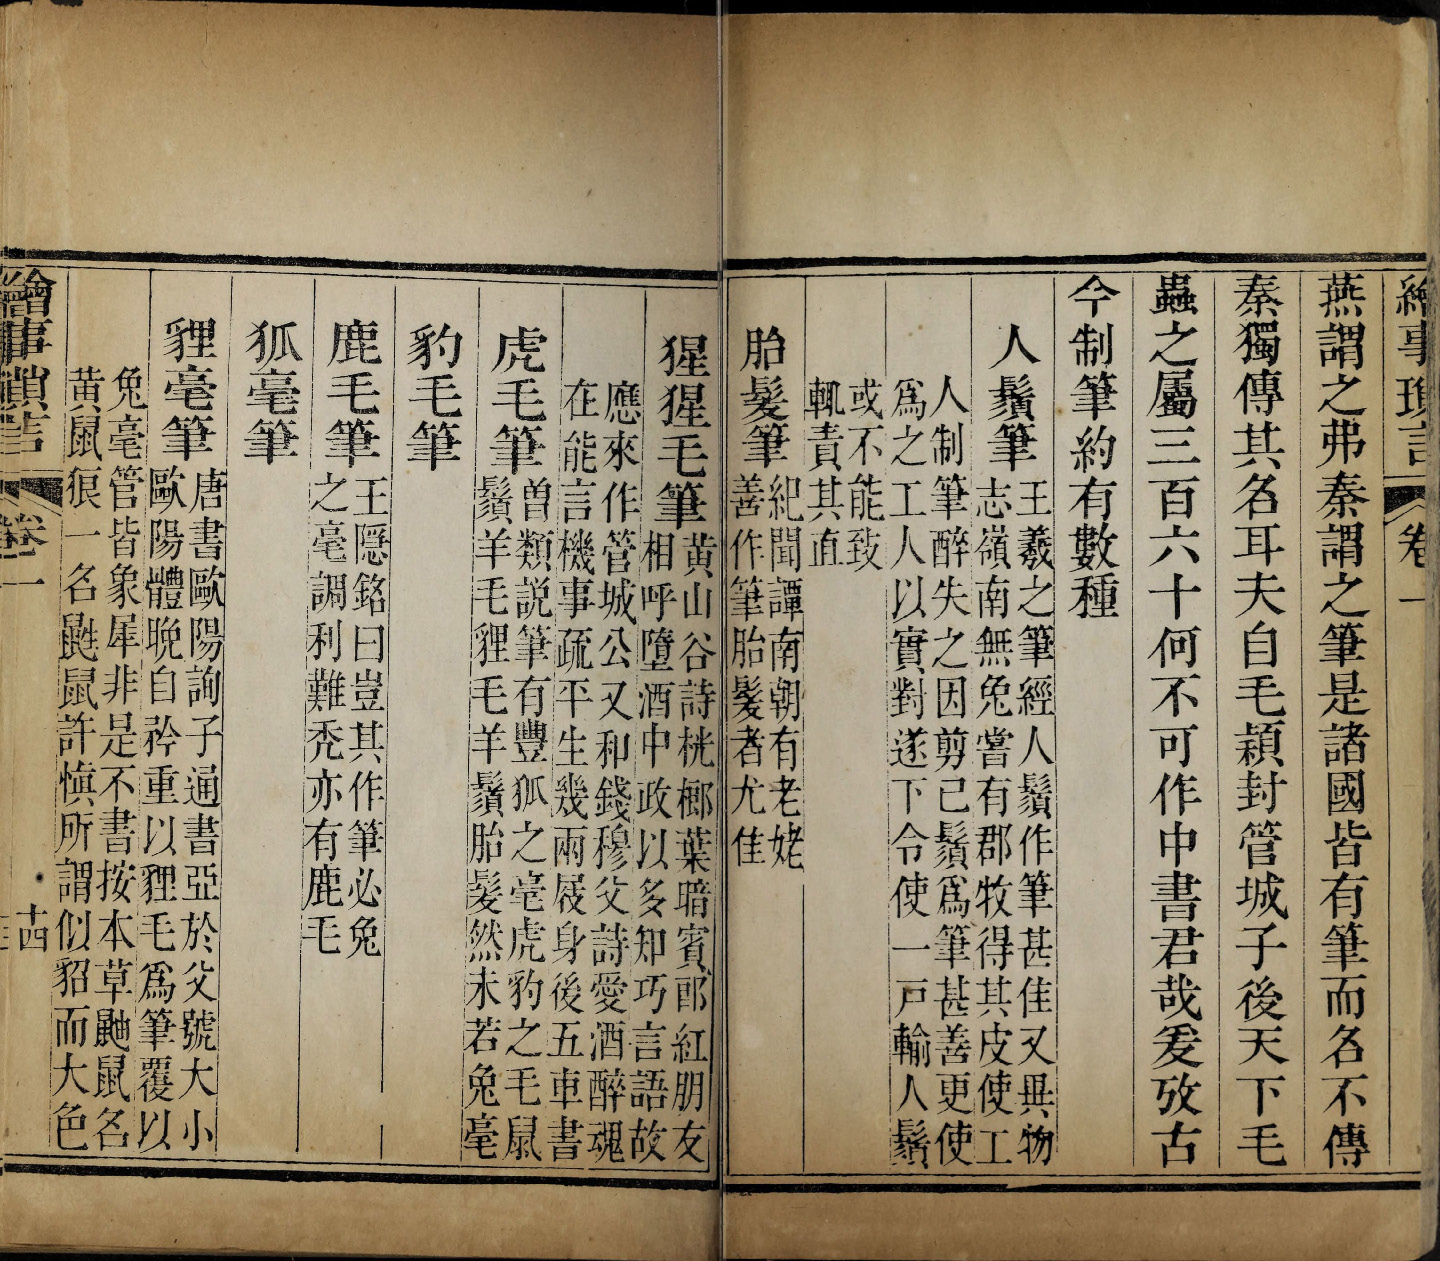 繪事瑣言 卷一
燕謂之弗秦謂之筆是諸國皆有筆而名不傳
秦獨傳其名耳夫自毛穎封管城子後天下毛
蟲之屬三百六十何不可作中書君哉爰攷古
今制筆約有數種
人鬚筆
王羲之筆經人鬚作筆甚佳又異物
志嶺南無兔嘗有郡牧得其皮使工
人制筆醉失之因剪己鬚爲筆甚善更使
爲之工人以實對遂下令使一戸輸人鬚
或不能致
輒責其直
胎髮筆
紀聞譚南朝有老姥
善作筆胎髮者尤佳
猩猩毛筆
黄山谷詩桄榔葉暗賓郎紅朋友
相呼墮酒中政以多知巧言語故
應來作管城公又和錢穆父詩愛酒醉魂
在能言機事疏平生幾兩屐身後五車書
虎毛筆
曽類説筆有豐狐之毫虎豹之毛鼠
鬚羊毛貍毛羊鬚胎髮然未若兔毫
豹毛筆
鹿毛筆
王隱銘曰豈其作筆必兔
之毫調利難秃亦有鹿毛
狐毫筆
貍毫筆
唐書歐陽詢子通書亞於父號大小
歐陽體晚自矜重以貍毛爲筆覆以
兔毫管皆象犀非是不書按本草鼬鼠名
黄鼠狼一名鼪鼠許慎所謂似貂而大色
繪事瑣言 卷一 十四